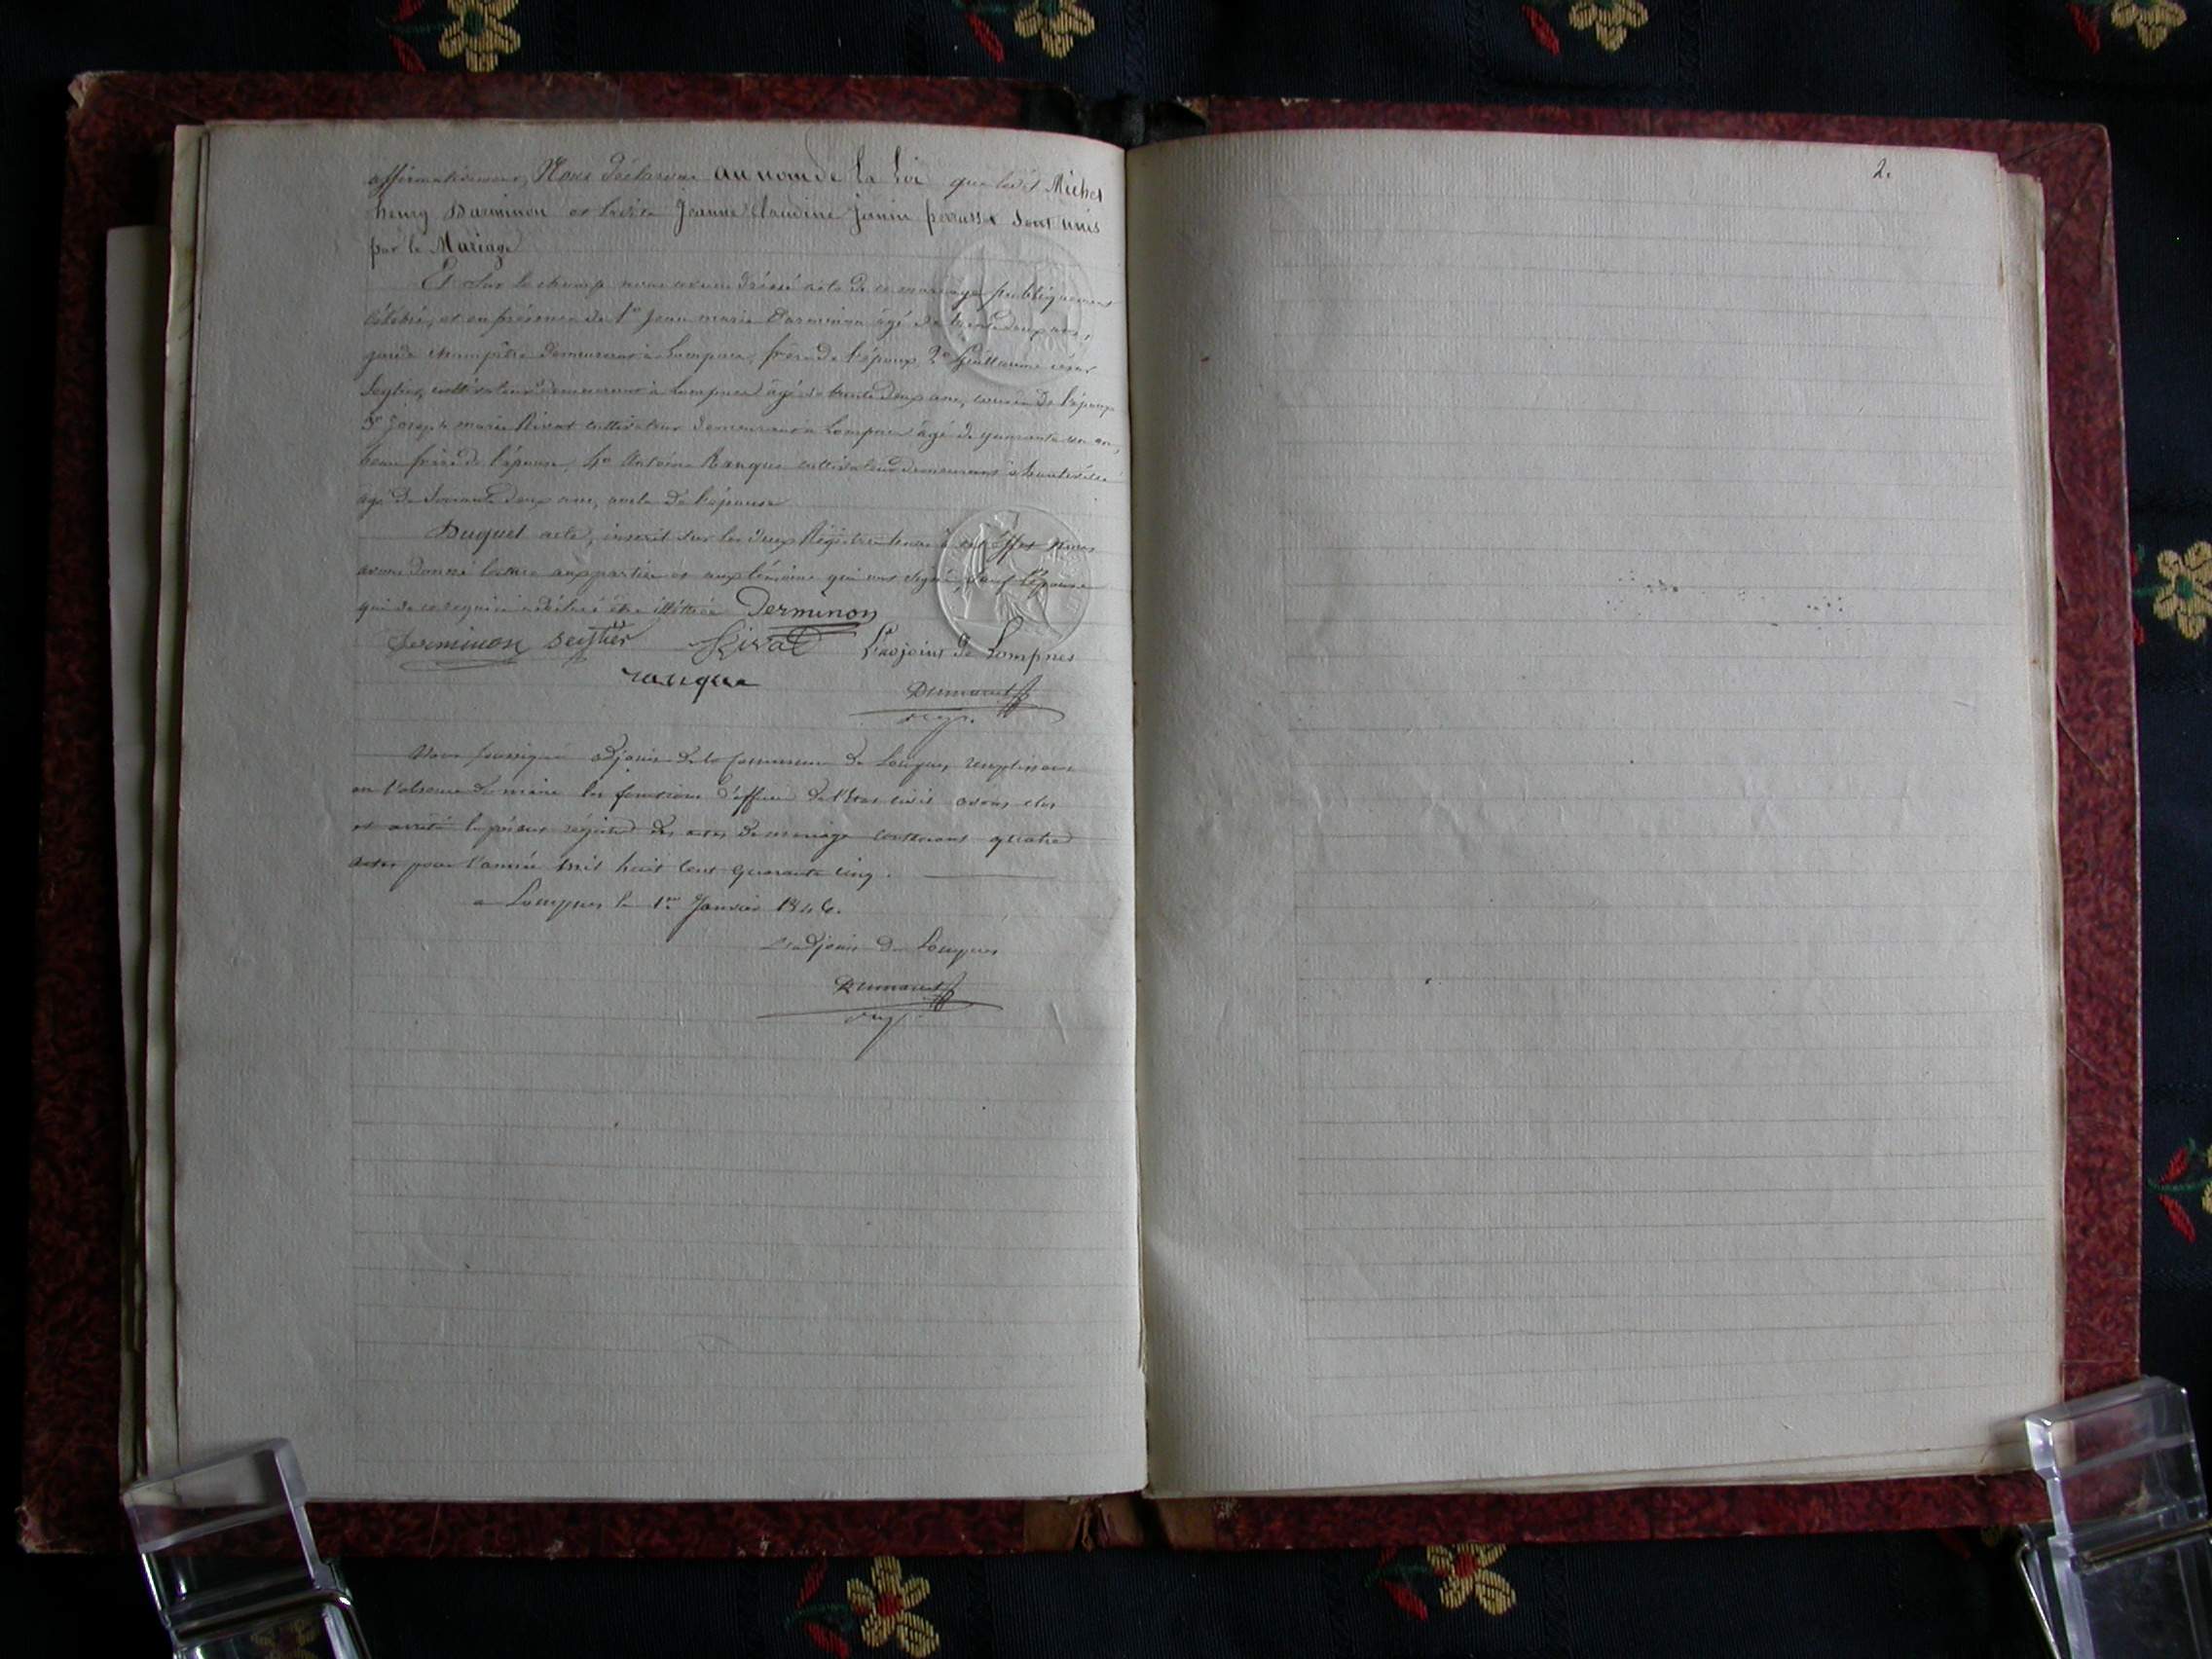 affirmativement, Nous déclarons au nom de la Loi que ledit Michel
henry Darminon et ladite Jeanne Claudine Janin perrusset Sont unis
par le Mariage
Et Sur le champ nous avons dressé acte de ce mariage publiquement
Célébré, et en présence de 1º Jean marie Darminon âgé de trente deux ans,
garde champêtre demeurant à Lompnes, frère de l'époux, 2º Guillaume césar
Seytier, cultivateur demeurant à Lompnes âgé de trente deux ans, cousin de l'époux
3º Joseph marie Rivat cultivateur demeurant à Lompnes âgé de quarante un an,
beau frère de l'épouse, 4º Antoine Ranque cultivateur demeurant à hauteville
âgé de Soixante deux ans, oncle de l'épouse
Duquel acte, inscrit Sur les deux Régistres tenus à cet éffet Nous
avons donné lecture aux parties et aux témoins qui ont Signé, Sauf l'épouse
qui de ce requise a déclaré être illétrée Derminon
Derminon seytier Rival L'adjoint de Lompnes
ranque
Dumarest
Nous soussigné adjoint de la commune de Lompnes remplissant
en l'absence du maire les fonctions d'officier de l'Etat civil avons clos
et arrêté le présent régistre des actes de mariage contenant quatre
actes pour l'année mil huit cent quarante cinq.
a Lompnes le 1er Janvier 1846.
L'adjoint de Lompnes
Dumarest
2.